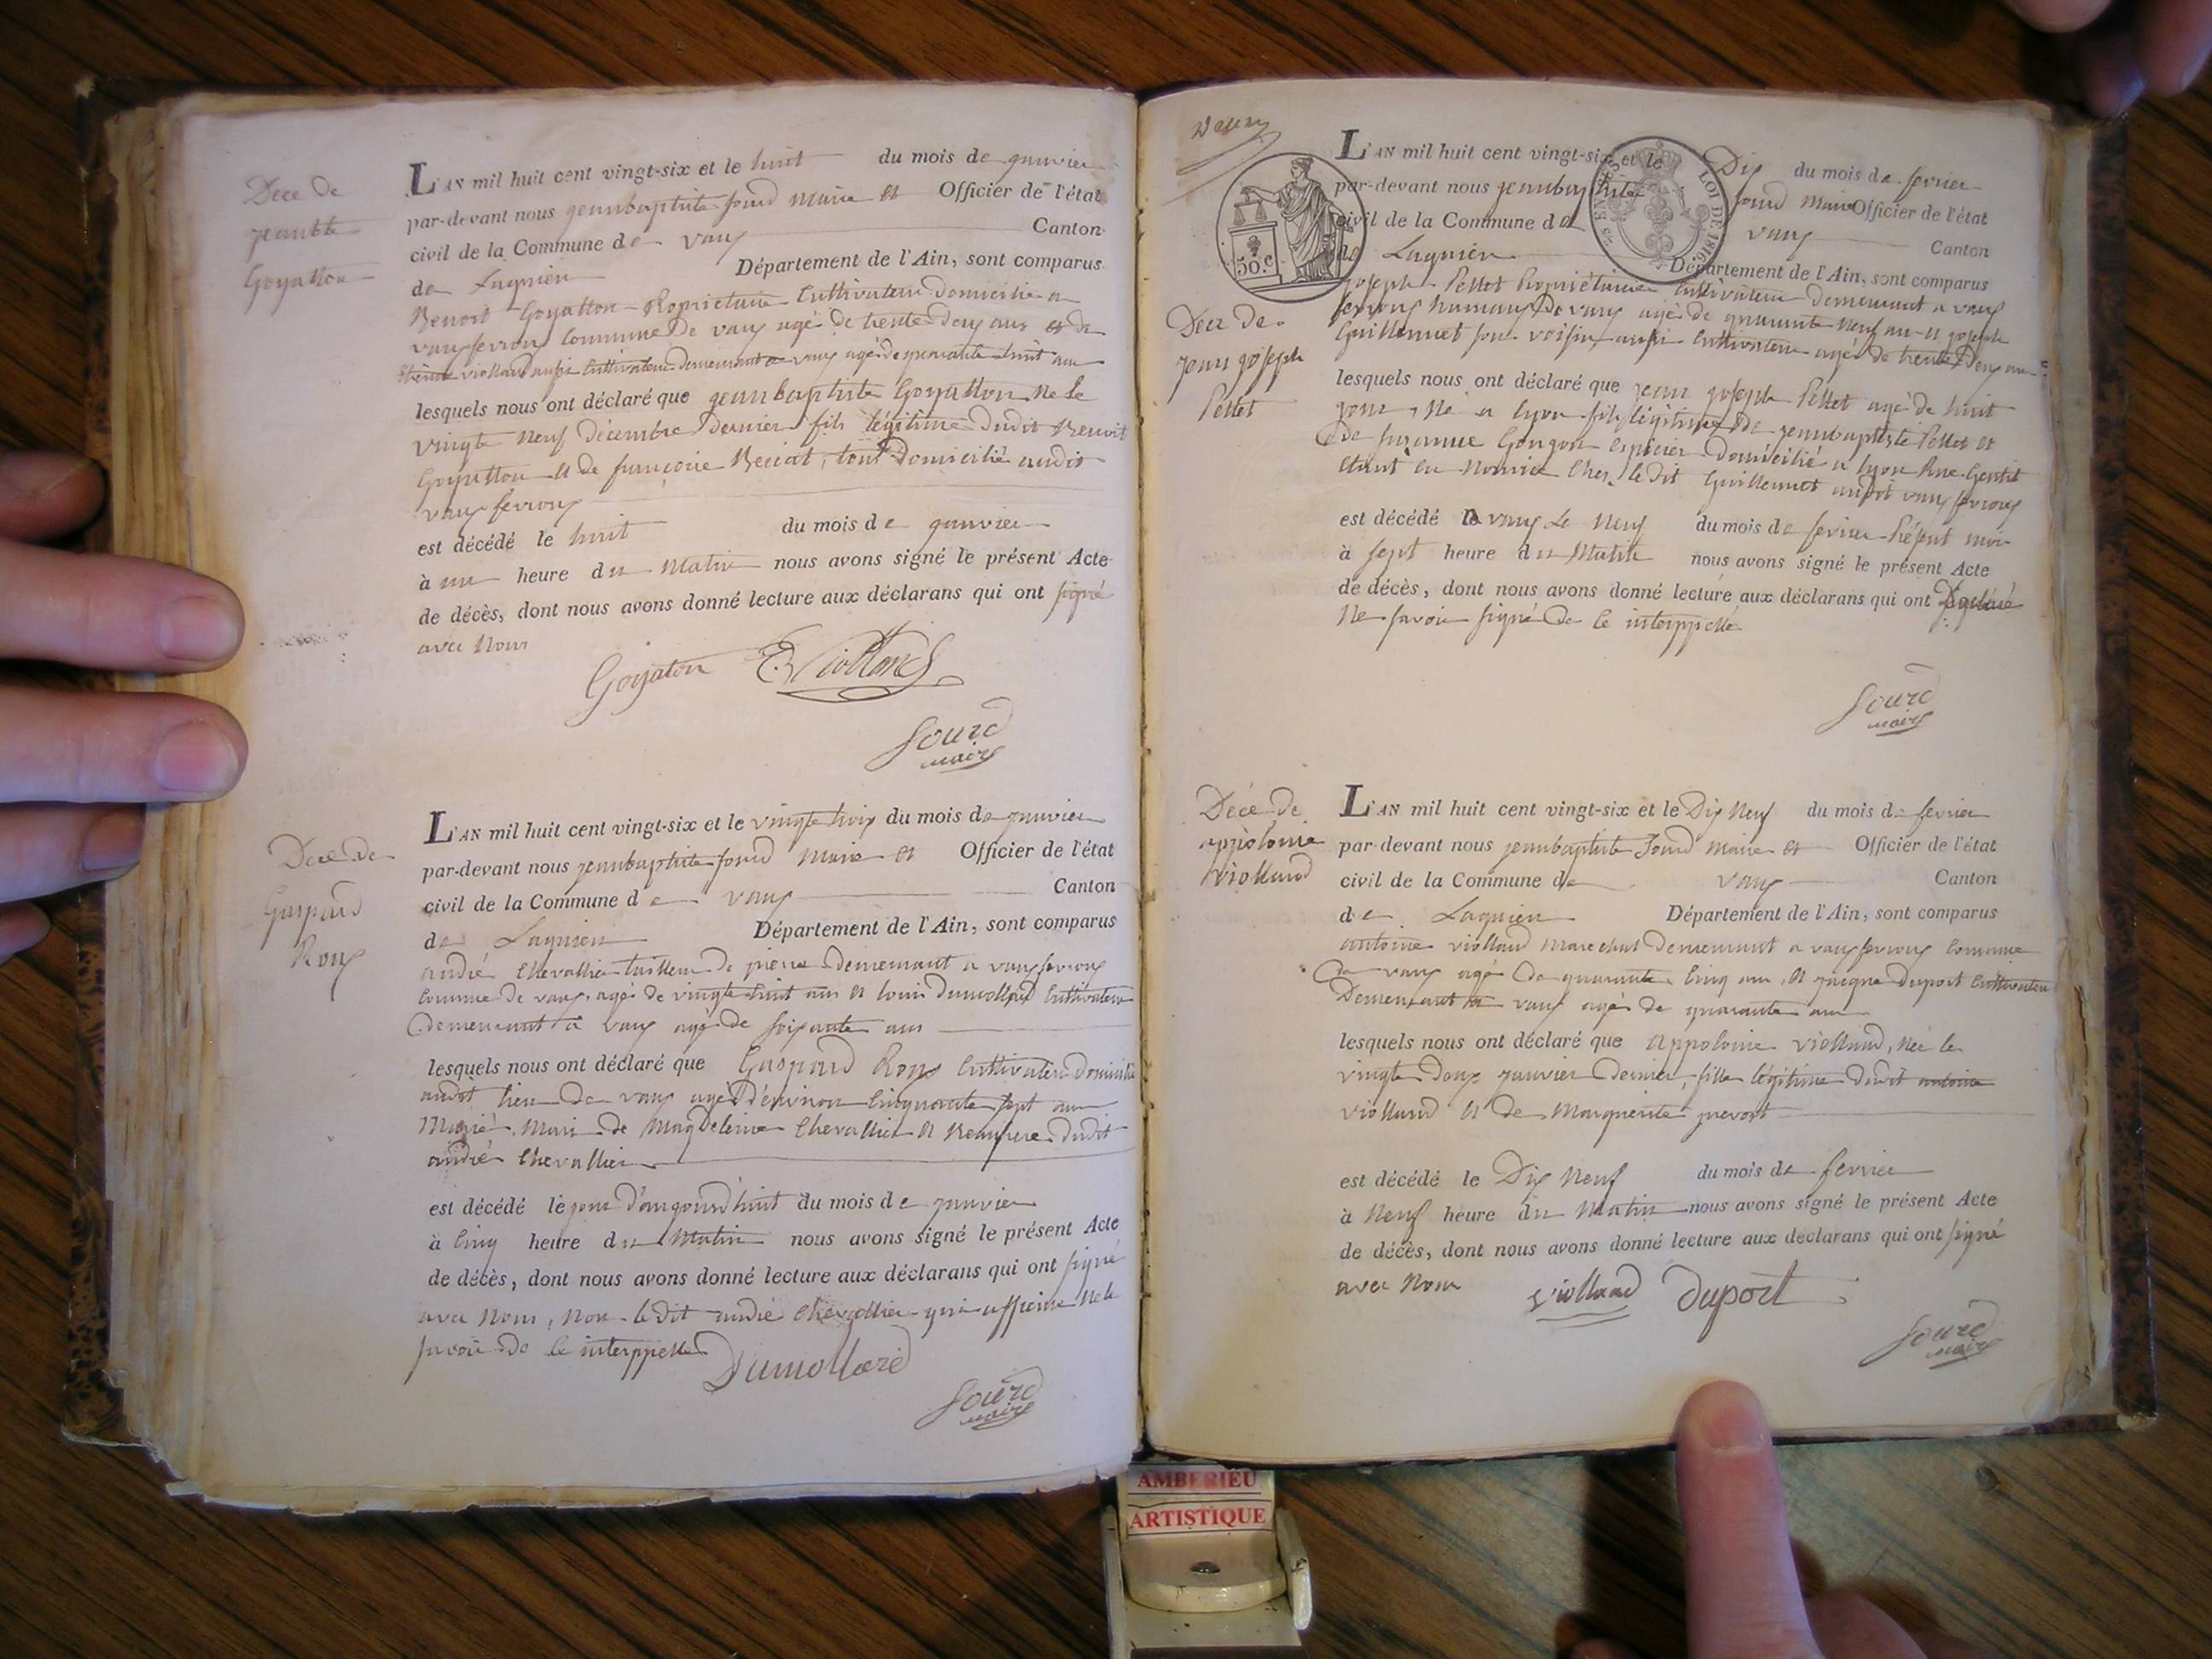 Déce de
jeanbte
Goyatton
L'AN mil huit cent vingt-six et le huit du mois de janvier
par-devant nous jeanbaptiste sourd maire et Officier de l'état
civil de la Commune de vaux Canton
de Lagnieu Département de l'Ain, sont comparus
Benoit Goyatton Propriétaire Cultivateur domicilié a
vauxfevroux Commune De vaux agé de trente deux ans et de
violland aussi Cultivateur demeurant a vaux agé de quarante huit ans
lesquels nous ont déclaré que jeanbaptiste Goyatton Né Le
vingte Neuf décembre dernier, fils légitime dudit Benoit
Goyatton et de françoise tous Domicilié audit
vauxfevroux
est décédé le huit du mois de janvier
à une heure du Matin nous avons signé le présent Acte
de décès, dont nous avons donné lecture aux déclarans qui ont signé
avec Nous
Goyaton E. Violland
Sourd
maire
Déce de
Gaspard
Roux
L'AN mil huit cent vingt-six et le vingte trois du mois de janvier
par-devant nous jeanbaptiste sourd maire et Officier de l'état
civil de la Commune de vaux Canton
de Lagnieu Département de l'Ain, sont comparus
andré Chevallier tailleur de pierre demeurant a vauxfevroux
Commune de vaux, agé de vingte huit ans et louis dumollard Cultivateur
demeurant a vaux agé de soixante ans
lesquels nous ont déclaré que Gaspard Roux Cultivateur domicilié
audit lieu de vaux agé d'environ Cinquante sept ans
Marié Mari de Magdeleine Chevallier et Beaupere dudit
andré Chevallier
est décédé le jour d'aujourd'huit du mois de janvier
à Cinq heure du Matin nous avons signé le présent Acte
de décès, dont nous avons donné lecture aux déclarans qui ont signé
avec Nous, Non ledit andré Chevallier qui affirme Ne le
savoir de ce interppellé
Dumollard
Sourd
maire
50.c
LOI DE 1816
L'AN mil huit cent vingt-six et le Dix du mois de fevrier
par-devant nous jeanbaptiste sourd Maire Officier de l'état
civil de la Commune de vaux Canton
de Lagnieu Département de l'Ain, sont comparus
joseph Pettet Propriétaire Cultivateur demeurant a vaux
fevroux hameaux De vaux agé de quarante Neuf an et joseph
Guillermet son voisin aussi Cultivateur agé de trente Deux an
Déce de
jean joseph
Pettet
lesquels nous ont déclaré que jean joseph Pettet agé de huit
jour, Né a lyon fils légitime de jeanbaptiste Pettet et
de suzanne Gongon Epicier domicilié a lyon Rue Gentit
étant en Nourice Chez le dit Guillermet audit vauxfevroux
est décédé a vaux Le Neuf du mois de fevrier Présent moi
à sept heure du Matin nous avons signé le présent Acte
de décès, dont nous avons donné lecture aux déclarans qui ont Déclaré
Ne savoir signé De ce interppellé
Sourd
maire
Déce de
appolonie
violland
L'AN mil huit cent vingt-six et le Dix Neuf du mois de fevrier
par-devant nous jeanbaptiste Sourd maire et Officier de l'état
civil de la Commune de vaux Canton
de Lagnieu Département de l'Ain, sont comparus
antoine violland Marechal demeurant a vauxfevroux Commune
de vaux agé de quarante Cinq ans et jacque duport Cultivateur
Demeurant a vaux agé de quarante ans
lesquels nous ont déclaré que appolonie violland, Née le
vingte Deux janvier dernier, fille légitime dudit antoine
violland et de Marguerite prevost
est décédé le Dix Neuf du mois de fevrier
à Neuf heure du Matin nous avons signé le présent Acte
de décès, dont nous avons donné lecture aux déclarans qui ont signé
avec Nous
violland duport
Sourd
maire
AMBERIEU
ARTISTIQUE